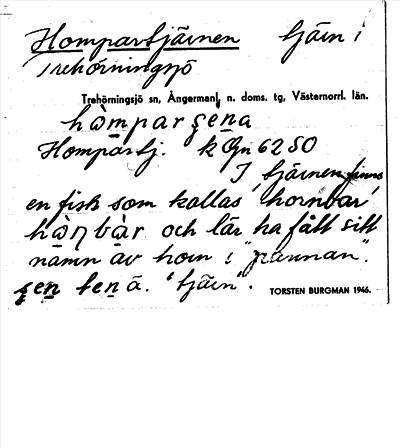 Hompartjärnen tjärn i
Trehörningsjö
Trehörningsjö sn, Ångermanl. n. doms. tg, Västernorrl. län.
Hompartj. k Gn 62 SO
I tjärnen finns
en fisk som kallas 'hornbar'
och lär ha fått sitt
namn av horn i "pannan".
"tjärn".
TORSTEN BURGMAN 1946.